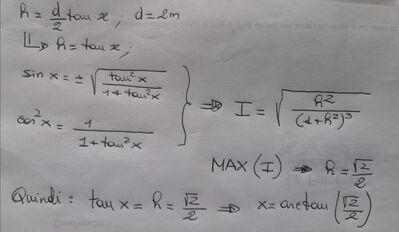 h = d/2 tan x ; d = 2m
⇓⇒ h = tan x ;
sin x = ± √(tan²x / (1 + tan²x))
cos²x = 1 / (1 + tan²x)
} ⇒ I = √(h² / (1 + h²)³)
MAX (I) ⇒ h = √2/2
Quindi : tan x = h = √2/2 ⇒ x = arctan (√2/2)